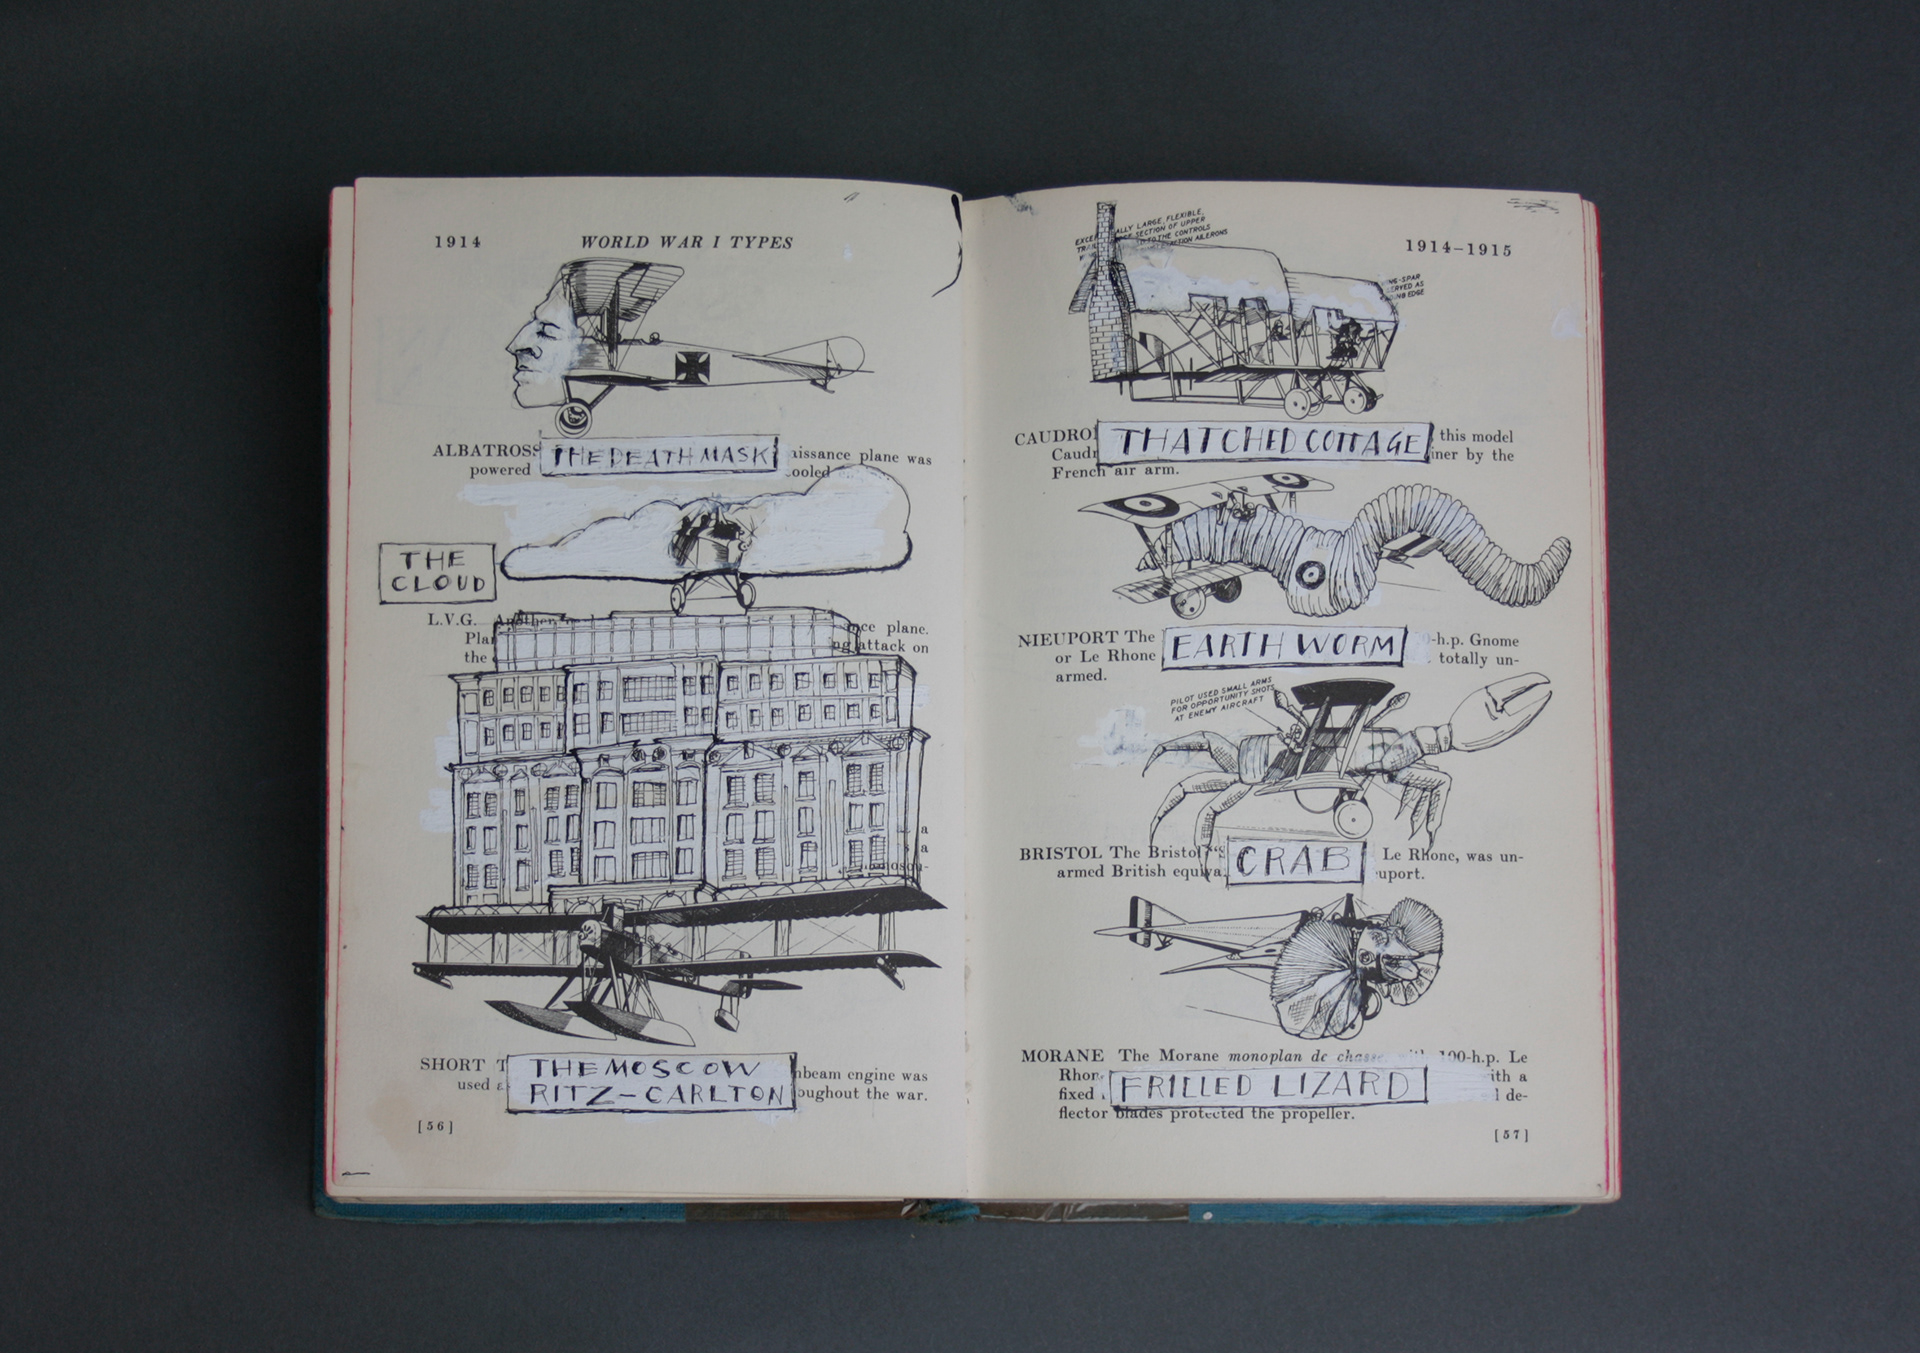 1914
WORLD WAR I TYPES
ALBATROSS THE DEATH MASK aissance plane was
powered ooled
THE
CLOUD
L.V.G. Another nce plane.
Plan ng attack on
the
a
a
SHORT T THE MOSCOW nbeam engine was
used a RITZ-CARLTON oughout the war.
[56]
ALLY LARGE, FLEXIBLE,
SECTION OF UPPER
TO THE CONTROLS
ACTION AILERONS
1914–1915
NG-SPAR
ERVED AS
EDGE
CAUDRO THATCHED COTTAGE this model
Caudr iner by the
French air arm.
NIEUPORT The EARTH WORM 0-h.p. Gnome
or Le Rhone totally un-
armed.
PILOT USED SMALL ARMS
FOR OPPORTUNITY SHOTS
AT ENEMY AIRCRAFT
BRISTOL The Bristol “S CRAB Le Rhone, was un-
armed British equiva euport.
MORANE The Morane monoplan de chasse with 100-h.p. Le
Rhon FRILLED LIZARD ith a
fixed d de-
flector blades protected the propeller.
[57]